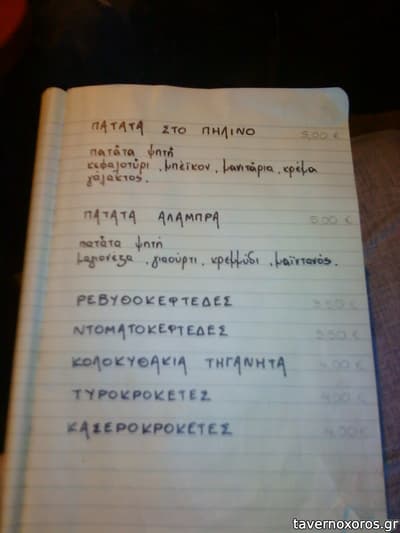 ΠΑΤΑΤΑ ΣΤΟ ΠΗΛΙΝΟ 5,00 €
πατάτα ψητή
κεφαλοτύρι, μπέϊκον, μανιτάρια, κρέμα
γάλακτος.
ΠΑΤΑΤΑ ΑΛΑΜΠΡΑ 5,00 €
πατάτα ψητή
μαγιονέζα, γιαούρτι, κρεμμύδι, μαϊντανός.
ΡΕΒΥΘΟΚΕΦΤΕΔΕΣ 3,50 €
ΝΤΟΜΑΤΟΚΕΦΤΕΔΕΣ 3,50 €
ΚΟΛΟΚΥΘΑΚΙΑ ΤΗΓΑΝΗΤΑ 4,00 €
ΤΥΡΟΚΡΟΚΕΤΕΣ 4,00 €
ΚΑΣΕΡΟΚΡΟΚΕΤΕΣ 4,00 €
tavernoxoros.gr